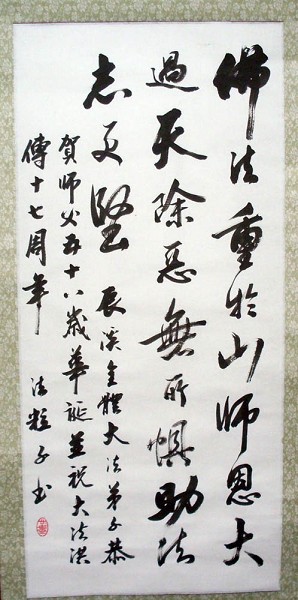 佛法重於山師恩大
過天除惡無所懼助法
志更堅
辰溪全體大法弟子恭
賀師父五十八歲華誕並祝大法洪
傳十七周年
法粒子書